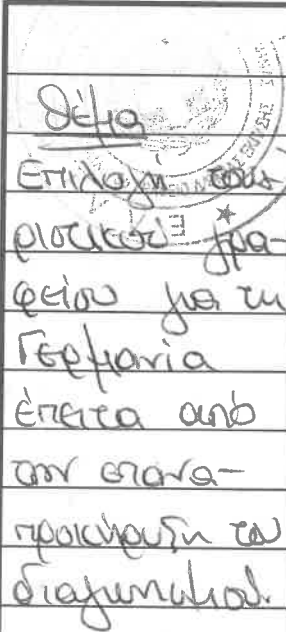 Θέμα
Επιλογή τουρι-
ριστικού γρα-
φείου για τη
Γερμανία
έπειτα από
την επανα-
προκήρυξη του
διαγωνισμού.